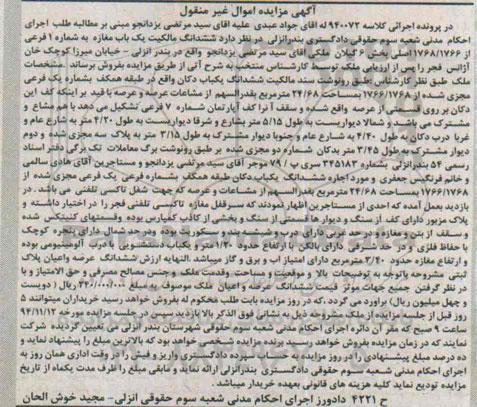 آگهی مزایده اموال غیر منقول
در پرونده اجرائی کلاسه ۹۴۰۰۷۲ له اقای جواد عبدی علیه اقای سید مرتضی یزدانجو مبنی بر مطالبه طلب اجرای
احکام مدنی شعبه سوم حقوقی دادگستری بندرانزلی در نظر دارد ششدانگ مالکیت یک باب مغازه به شماره ۱ فرعی
۱۷۶۸/۱۷۶۶ اصلی بخش ۶ گیلان ملکی آقای سید مرتضی یزدانجو واقع در بندر انزلی - خیابان میرزا کوچک خان
آژانس فجر را پس از ارزیابی ملک توسط کارشناس منتخب به شرح آتی از طریق مزایده بفروش برساند. مشخصات
ملک طبق نظر کارشناس طبق رونوشت سند مالکیت ششدانگ یکباب دکان واقع در طبقه همکف بشماره یک فرعی
مجزی شده از ۱۷۶۶/۱۷۶۸ بمساحت ۲۴/۶۸ مترمربع بقدرالسهم از مشاعات عرصه و عرصه با قید بر اینکه کف این
دکان بر روی قسمتی از عرصه واقع شده و سقف آنرا کف آپارتمان شماره ۷ فرعی تشکیل می دهد با هم مشاع و
مشترک می باشند و شمالا دیواریست به طول ۵/۱۵ متر بشارع و شرقا دیواریست به طول ۴/۲۰ متر به شارع عام و
غربا درب دکان به طول ۴/۴۰ به شارع عام و جنوبا دیوار مشترک به طول ۳/۱۵ متر به پلاک سه مجزی شده و دوم
دیوار مشترک به طول ۳/۴۵ متر بدکان شماره دو مجزی شده بر طبق رونوشت برگ معاملات تک برگی دفتر اسناد
رسمی ۵۴ بندرانزلی بشماره ۳۴۵۱۸۳ سری پ / ۷۹ موجر آقای سید مرتضی یزدانجو و مستاجرین آقای هادی سالمی
و خانم فرنگیس جعفری و مورد اجاره ششدانگ یکباب دکان طبقه همکف بشماره فرعی یک فرعی مجزی شده از
۱۷۶۶/۱۷۶۸ بمساحت ۲۴/۶۸ مترمربع بقدرالسهم از مشاعات و عرصه که جهت شغل تاکسی تلفنی می باشد. در
بازدید بعمل آمده که احدی از مستاجرین اظهار نمودند که سرقفل مغازه تاکسی تلفنی فجر را در اختیار داشته و
پلاک مزبور دارای کف از سنگ و دیوار ها قسمتی از سنگ و بخشی از کاغذ کفپارس بوده وقسمتهای کنیتکس شده
و سقف از بتن و مغازه و در حد غربی دارای درب و شیشه بند و سکوریت بوده ودر حد شمال دای پنجره کوچک
با حفاظ فلزی و در حد شرقی دارای بالکن با ارتفاع حدود ۱/۳۰ متر و یکباب دستشویی با درب آلومینیومی بوده
و ارتفاع مغازه حدود ۳/۴۰ مترمربع دارای امتیاز اب و برق و گاز میباشد .النهایه ارزش ششدانگ عرصه واعیان پلاک
ثبتی مشروحه باتوجه به توضیحات بالا و موقعیت و مساحت وقدمت ملک و جنس مصالح مصرفی و حق الامتیاز و با
در نظر گرفتن جمیع جهات موثر قیمت ششدانگ عرصه و اعیان ملک موصوف به مبلغ ۲۴۰/۰۰۰/۰۰۰ ریال ( دویست
و چهل میلیون ریال) براورد می گردد .که در روز مزایده بابت طلب محکوم له بفروش خواهد رسید خریداران میتوانند ۵
روز قبل از جلسه مزایده از ملک مشروحه ذیل به نشانی فوق الذکر بالا بازدید سپس در جلسه مزایده مورخه ۹۴/۱۱/۱۲
ساعت ۹ صبح که مقر آن دائره اجرای احکام مدنی شعبه سوم حقوقی شهرستان بندر انزلی می تعیین گردیده شرکت
نمایند که در زمان مزایده بفروش خواهد رسید برنده مزایده شخصی خواهد بود که بالاترین مبلغ را پیشنهاد نماید و
ده درصد مبلغ پیشنهادی را در روز مزایده به حساب سپرده دادگستری واریز و فیش را در وقت اداری همان روز به
اجرای احکام مدنی شعبه سوم حقوقی دادگستری بندرانزلی ارائه نماید و مابقی مبلغ را ظرف مدت یکماه از تاریخ
مزایده تودیع نماید کلیه هزینه های قانونی بعهده خریدار میباشد .
ح ۴۲۲۱ دادورز اجرای احکام مدنی شعبه سوم حقوقی انزلی- مجید خوش الحان